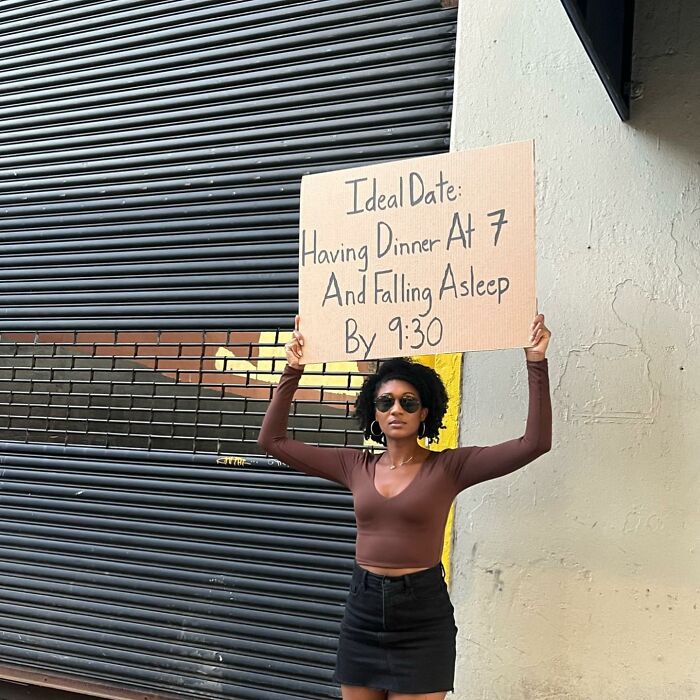 Ideal Date:
Having Dinner At 7
And Falling Asleep
By 9:30